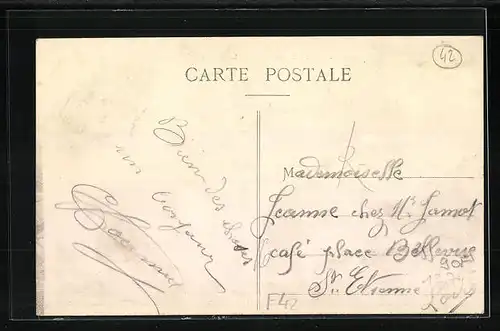 42
CARTE POSTALE
Bien des choses
un bonjour
Mademoiselle
Jeanne chez Mr Jamot
café place Bellevue
St Etienne
Loire
F42